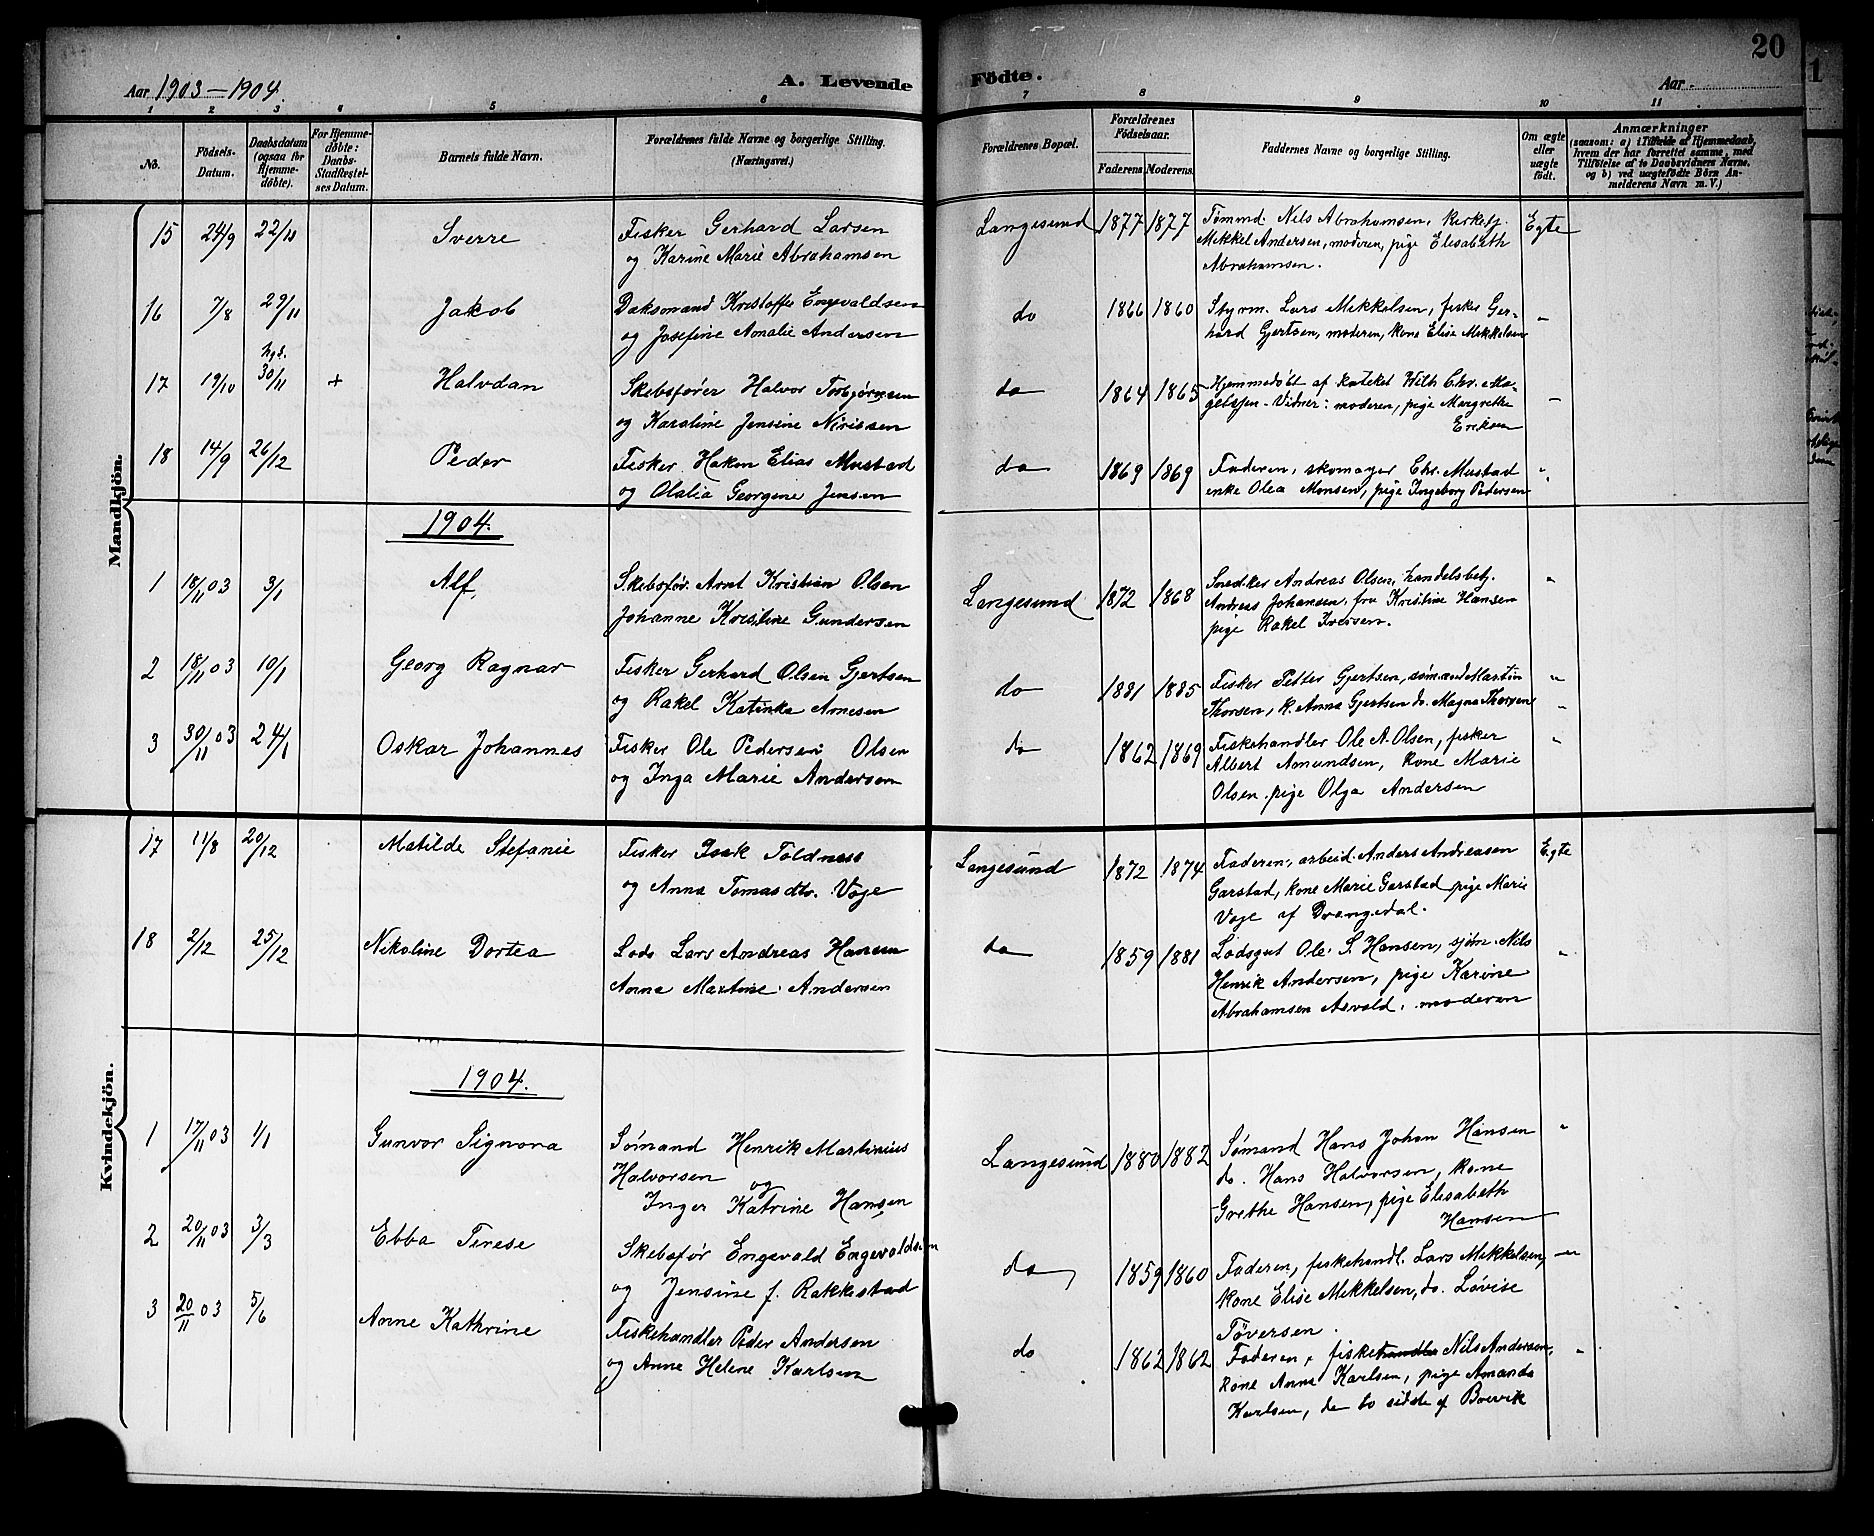 20
Aar 1903–1904. A. Levende Födte. Aar
1 2 3 4 5 6 7 8 9 10 11
No. Födsels-Datum. Daabsdatum (ogsaa for Hjemmedöbte). For Hjemmedöbte: Daabs-Stadfæstelses Datum. Barnets fulde Navn. Forældrenes fulde Navne og borgerlige Stilling. (Næringsvei.) Forældrenes Bopæl. Forældrenes Födselsaar. Faderens Moderens Faddernes Navne og borgerlige Stilling. Om ægte eller uægte födt. Anmærkninger (saasom: a) i Tilfælde af Hjemmedaab, hvem der har forrettet samme, med Tilföielse af to Daabsvidners Navne, og b) ved uægtefödte Börn Anmelderens Navn m. V.)
Mandkjön.
15 24/9 22/11 Sverre Fisker Gerhard Larsen Langesund 1877 1877 Tømmd. Nils Abrahamsen, kirketj. Egte
og Karine Marie Abrahamsen Mikkel Andersen, moderen, pige Elisabeth
Abrahamsen.
16 7/8 29/11 Jakob Dæksmand Kristoffer Engevaldsen do 1866 1860 Styrm. Lars Mikkelsen, fisker Ger- "
og Josefine Amalie Andersen hard Gjertsen, moderen, kone Elise Mikkelsen
17 19/10 hjd. 30/11 + Halvdan Skibsfører Halvor Torbjørnsen do 1864 1865 Hjemmedøbt af kateket Wilh. Chr. Ma- "
og Karoline Jensine Nirissen gelssen – Vidner: moderen, pige Margrethe
Eriksen
18 14/9 26/12 Peder Fisker Hakon Elias Mustad do 1869 1869 Faderen, skomager Chr. Mustad "
og Olalia Georgine Jensen enke Olea Monsen, pige Ingeborg Pedersen
1904.
1 18/11 03 3/1 Alf, Skibsfør. Arnt Kristian Olsen Langesund 1872 1868 Snedker Andreas Olsen, handelsbetj. "
Johanne Kristine Gundersen Andreas Johansen, fru Kristine Hansen
pige Rakel Iversen.
2 18/11 03 10/1 Georg Ragnar Fisker Gerhard Olsen Gjertsen do 1881 1885 Fisker Petter Gjertsen, sømand Martin "
og Rakel Katinka Arnesen Thorsen, k. Anna Gjertsen do. Magna Thorsen "
3 30/11 03 24/1 Oskar Johannes Fisker Ole Pedersen Olsen do 1862 1869 Fiskehandler Ole A. Olsen, fisker "
og Inga Marie Andersen Albert Amundsen, kone Marie
Olsen, pige Olga Andersen
Kvindekjön.
17 11/8 20/12 Matilde Stefanie Fisker Isak Toldness Langesund 1872 1874 Faderen, arbeid. Anders Andreasen Egte
og Anna Tomasdtr. Voje Garstad, kone Marie Garstad pige Marie
Voje af Drangedal.
18 2/12 25/12 Nikoline Dortea Lods Lars Andreas Hansen do 1859 1881 Lodsgut Ole S. Hansen, sjøm. Nils "
Anna Martine Andersen Henrik Andersen, pige Karine
Abrahamsen Asvald, moderen
1904.
1 17/11 03 1/1 Gunvor Signora Sømand Henrik Martinius Langesund 1880 1882 Sømand Hans Johan Hansen "
Halvorsen og do. Hans Halvorsen, kone
Inger Katrine Hansen Grethe Hansen, pige Elisabeth
Hansen
2 20/11 03 3/3 Ebba Terese Skibsfør Engevald Engevaldsen do 1859 1860 Faderen, fiskehandl. Lars Mikkelsen, "
og Jensine f. Rakkestad kone Elise Mikkelsen, do. Lovise
Töversen.
3 20/11 03 5/6 Anne Kathrine Fiskehandler Peder Andersen do 1862 1862 Faderen, fiskehandler Nils Andersen, "
og Anne Helene Karlsen kone Anna Karlsen, pige Amanda
Karlsen, de to sidste af Barvik